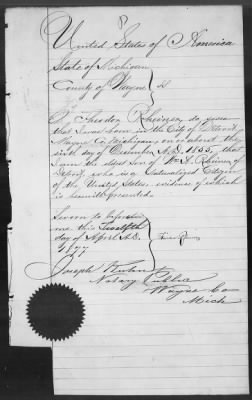 United States of America
State of Michigan
County of Wayne } ss
I, Theodor Rheinser, do swear
that I was born in the City of Detroit
Wayne Co. Michigan, on or about the
sixth day of December A.D. 1855, that
I am the eldest Son of Wm
Detroit, who is a Naturalized Citizen
of the United States, evidence of which
is herewith presented.
Sworn to before
me this Twelfth
day of April A.D.
1877
Joseph Kuhn
Notary Public
Wayne Co
Mich